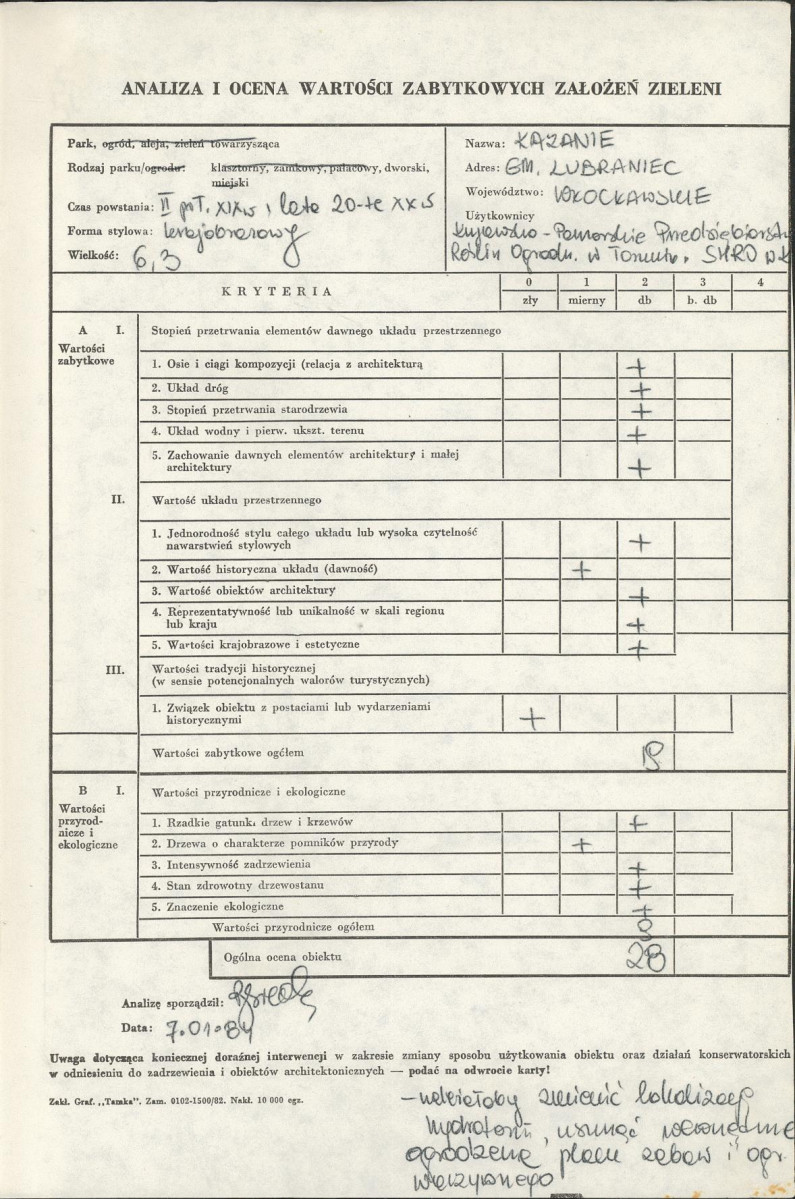 ANALIZA I OCENA WARTOŚCI ZABYTKOWYCH ZAŁOŻEŃ ZIELENI
Park, ogród, aleja, zieleń towarzysząca
Rodzaj parku/ogrodu: klasztorny, zamkowy, pałacowy, dworski, miejski
Czas powstania: II poł. XIX w i lata 20-te XX w
Forma stylowa: krajobrazowy
Wielkość: 6,3
Nazwa: KAZANIE
Adres: GM. LUBRANIEC
Województwo: WŁOCŁAWSKIE
Użytkownicy
Kujawsko-Pomorskie Przedsiębiorstw
Roślin Ogrodn. w Toruniu, SHRO
KRYTERIA
0 1 2 3 4
zły mierny db b. db
A I. Stopień przetrwania elementów dawnego układu przestrzennego
Wartości
zabytkowe
1. Osie i ciągi kompozycji (relacja z architekturą +
2. Układ dróg +
3. Stopień przetrwania starodrzewia +
4. Układ wodny i pierw. ukszt. terenu +
5. Zachowanie dawnych elementów architektury i małej
architektury +
II. Wartość układu przestrzennego
1. Jednorodność stylu całego układu lub wysoka czytelność
nawarstwień stylowych +
2. Wartość historyczna układu (dawność) +
3. Wartość obiektów architektury +
4. Reprezentatywność lub unikalność w skali regionu
lub kraju +
5. Wartości krajobrazowe i estetyczne +
III. Wartości tradycji historycznej
(w sensie potencjonalnych walorów turystycznych)
1. Związek obiektu z postaciami lub wydarzeniami
historycznymi +
Wartości zabytkowe ogółem 19
B I. Wartości przyrodnicze i ekologiczne
Wartości
przyrod-
nicze i
ekologiczne
1. Rzadkie gatunki drzew i krzewów +
2. Drzewa o charakterze pomników przyrody +
3. Intensywność zadrzewienia +
4. Stan zdrowotny drzewostanu +
5. Znaczenie ekologiczne +
Wartości przyrodnicze ogółem 9
Ogólna ocena obiektu 28
Analizę sporządził:
Data: 7.01.84
Uwaga dotycząca koniecznej doraźnej interwencji w zakresie zmiany sposobu użytkowania obiektu oraz działań konserwatorskich
w odniesieniu do zadrzewienia i obiektów architektonicznych — podać na odwrocie karty!
Zakł. Graf. „Tamka”. Zam. 0102-1500/82. Nakł. 10 000 egz.
- należałoby zmienić lokalizację
hydroforni, usunąć wewnętrzne
ogrodzenie, placu zabaw i ogr.
warzywnego